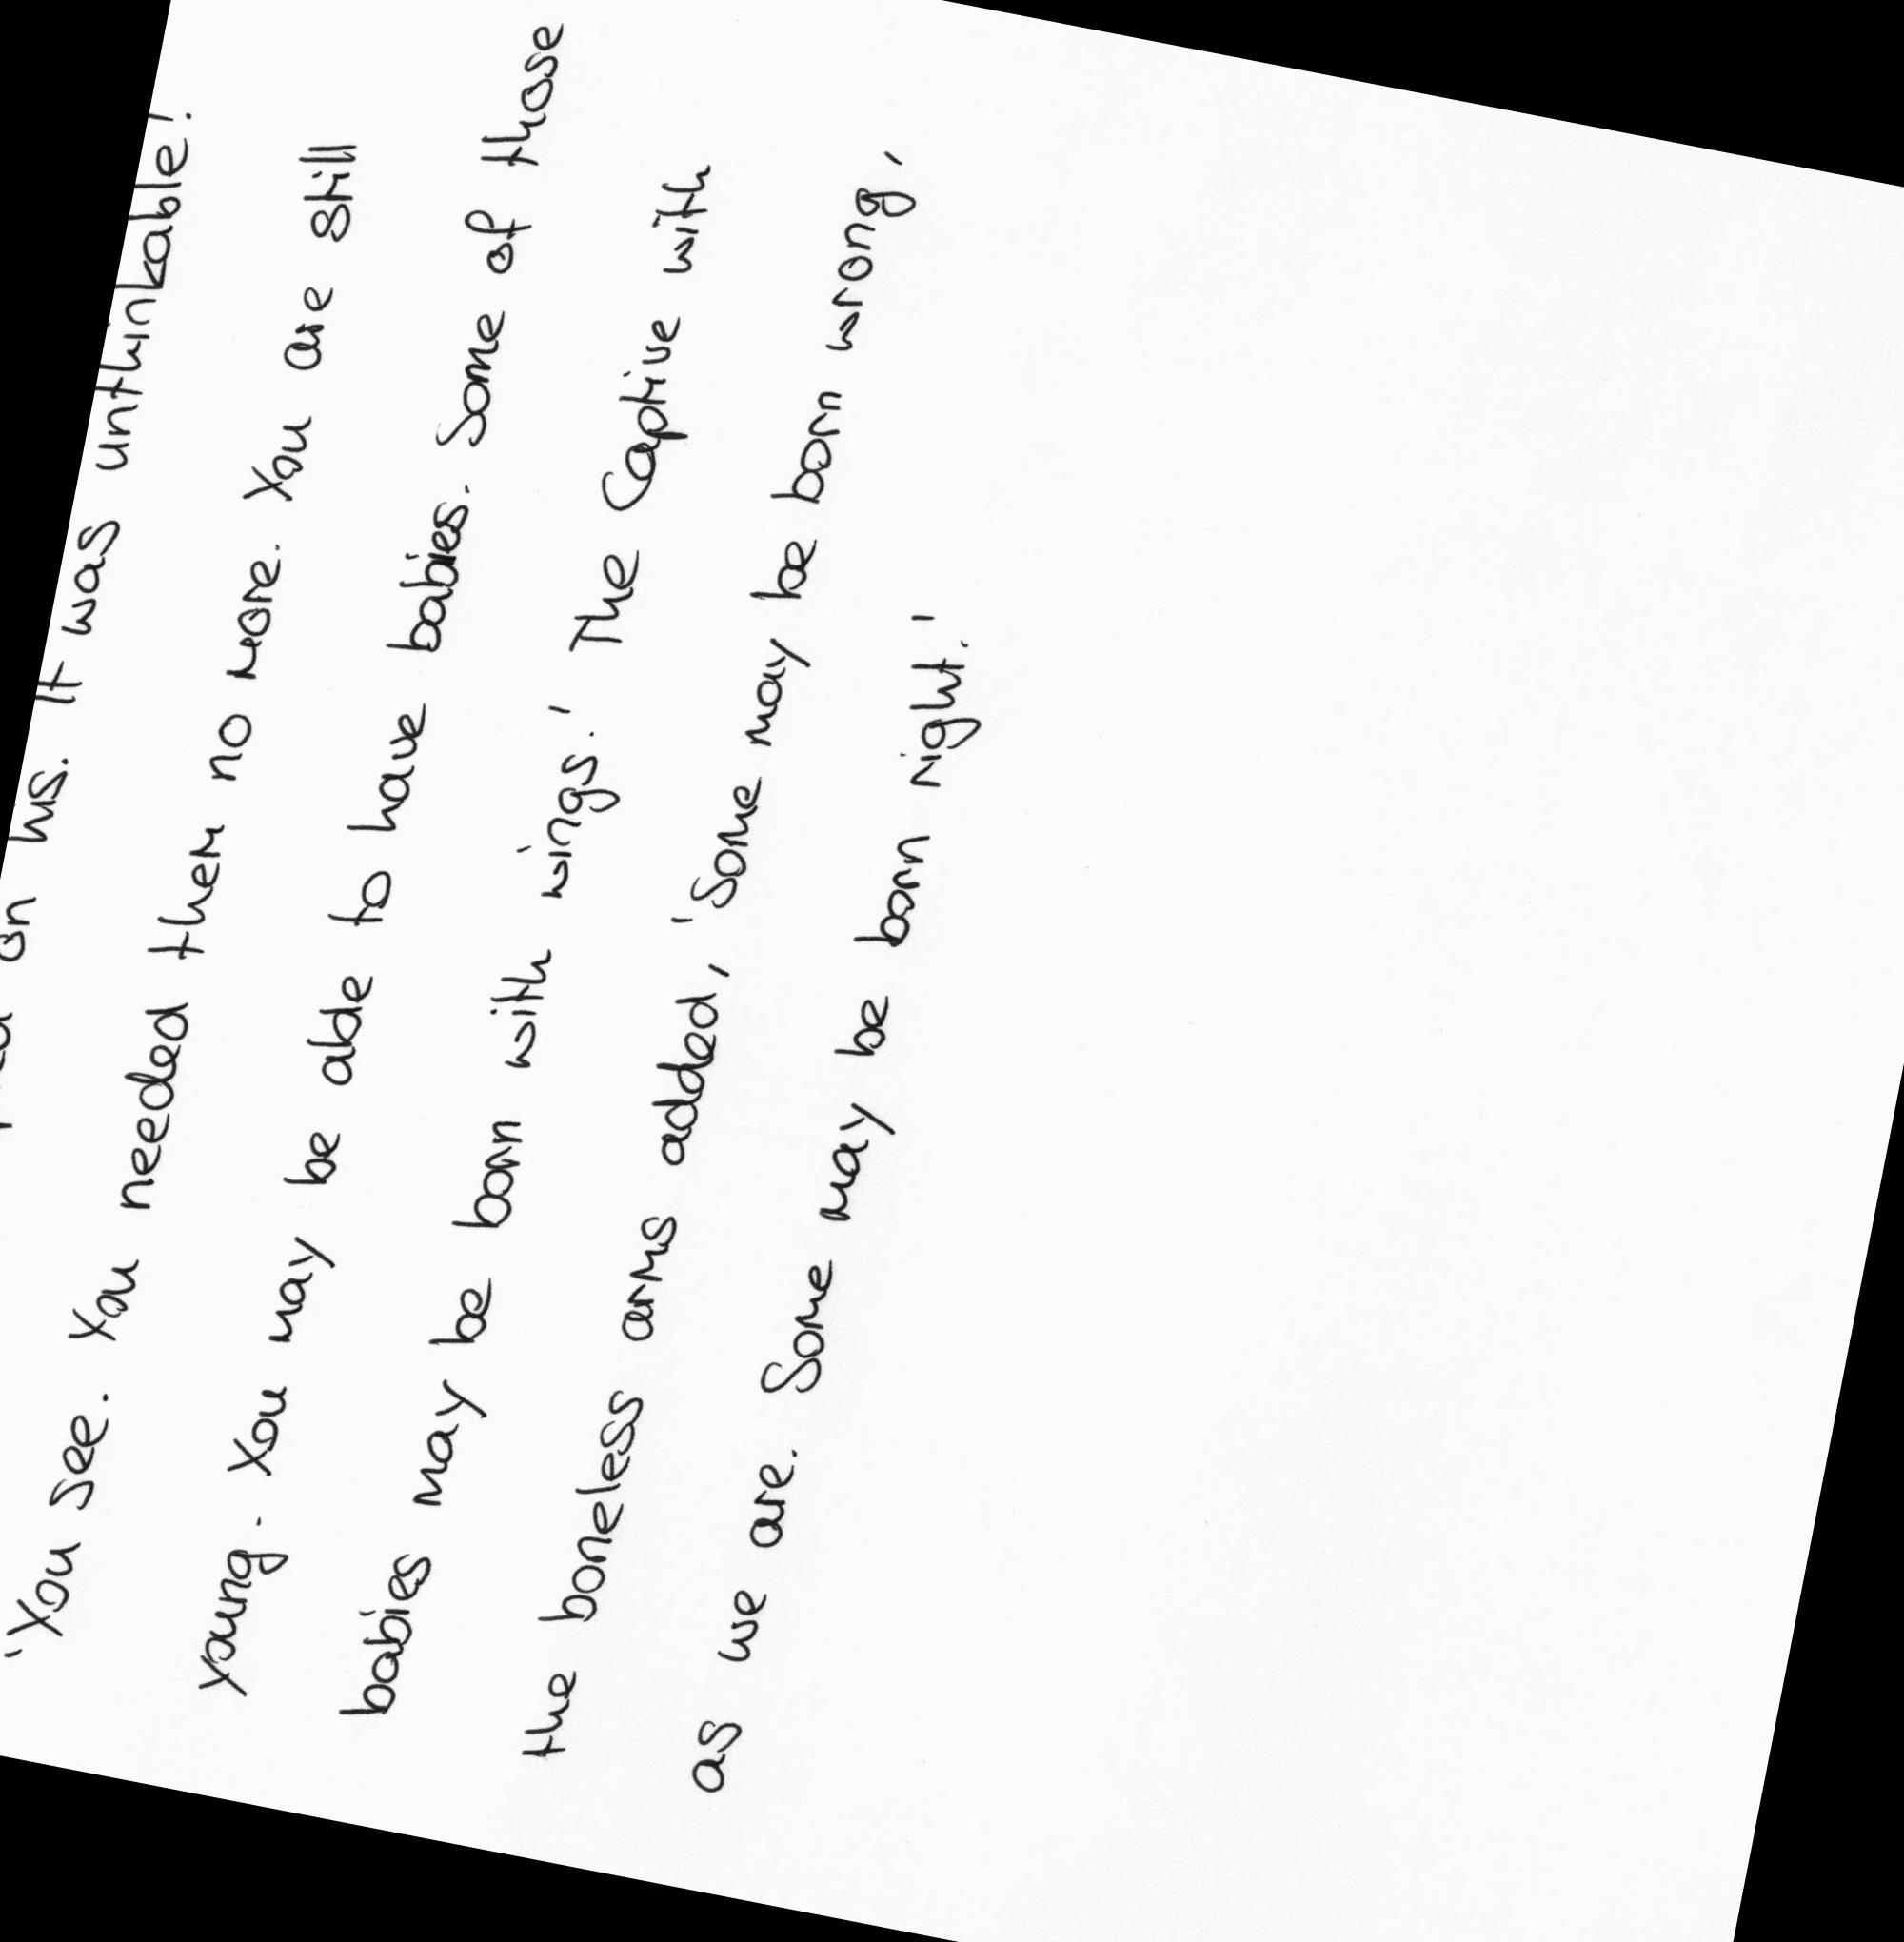 on his. It was unthinkable!
'You see. You needed them no more. You are still
young. You may be able to have babies. Some of those
babies may be born with wings.' The Captive with
the boneless arms added, 'Some may be born wrong,
as we are. Some may be born right.'